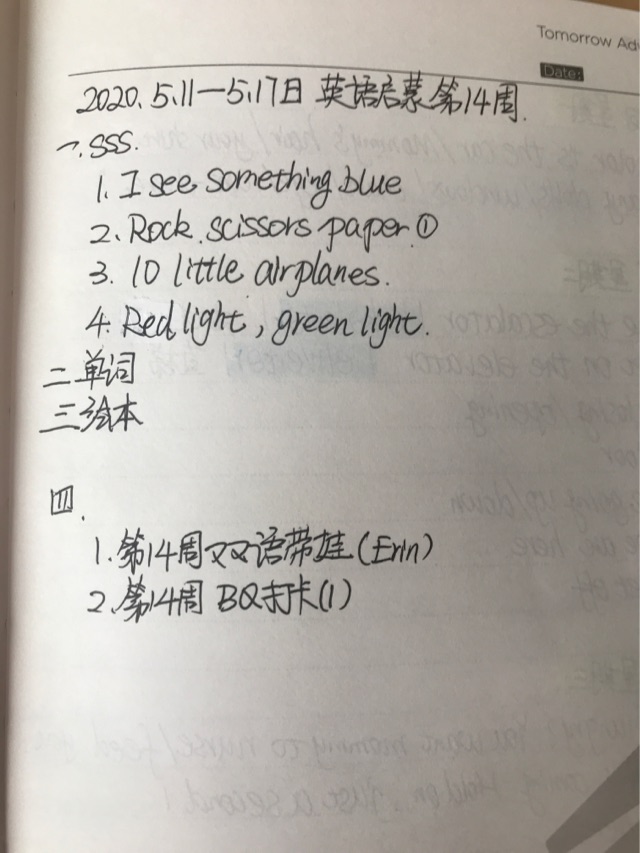 Tomorrow Ad
Date:
2020. 5.11—5.17日 英语启蒙 第14周.
一. SSS.
1. I see something blue
2. Rock. scissors paper. ①
3. 10 little airplanes.
4. Red light, green light.
二 单词
三 绘本
四.
1. 第14周双语带娃(Erin)
2. 第14周 BQ打卡(1)